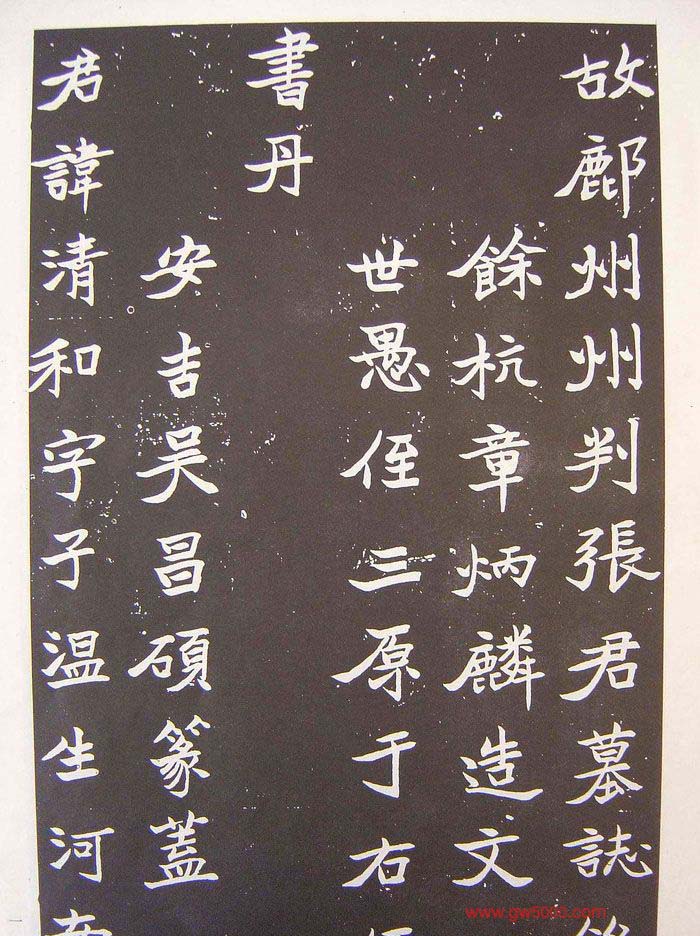 故鄜州州判張君墓誌
餘杭章炳麟造文
世愚侄三原于右
書丹
安吉吴昌碩篆蓋
君諱清和字子温生河